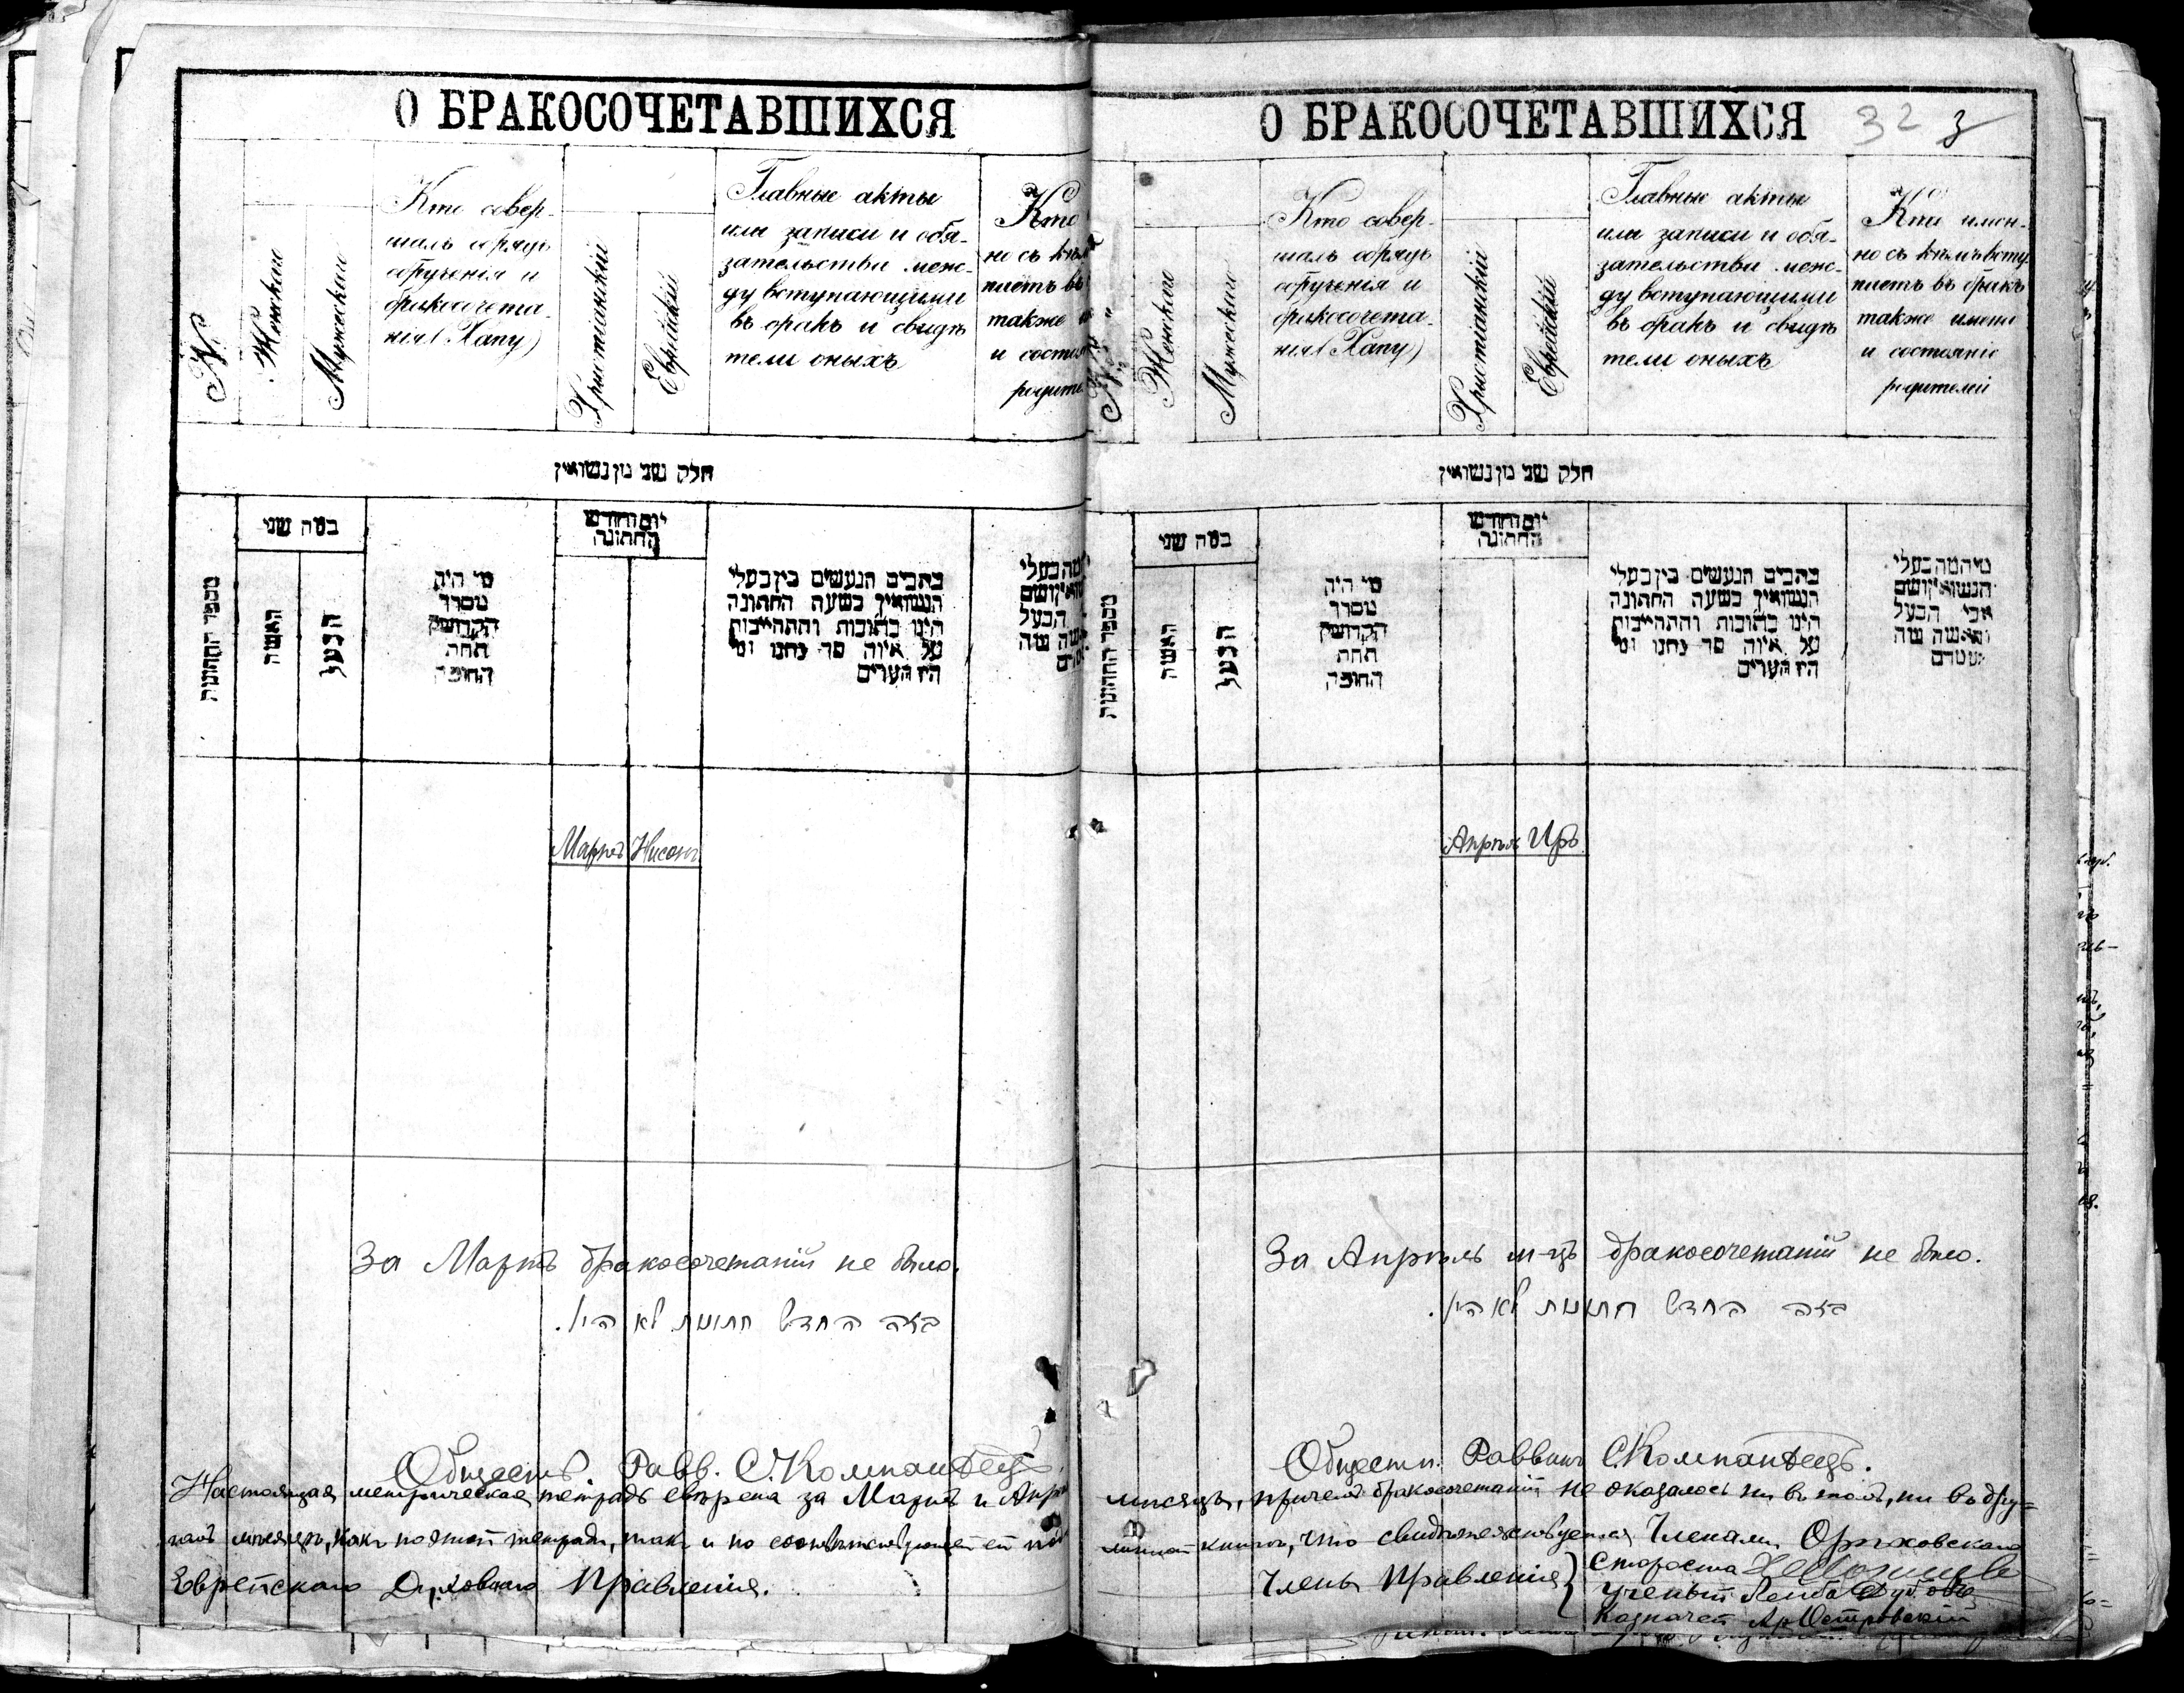 О БРАКОСОЧЕТАВШИХСЯ
№
Женскаго
Мужескаго
Кто совер-
шалъ обрядъ
обрученія и
бракосочета-
нія (Хапу)
Христіанскій
Еврейскій
Главные акты
или записи и обя-
зательства меж-
ду вступающими
въ бракъ и свидѣ
тели оныхъ
Кто
но съ кѣмъ
паетъ въ
также
и состоя
родите
חלק שני מן נשואין
מספר החתונות
כמה שני
האשה
הבעל
מי היה
מסדר
הקדושין
תחת
החופה
יום וחודש
החתונה
כתבים הנעשים בין בעלי
הנשואין בשעת החתונה
היינו כתובות והתחייבות
על איזה סך נתנו ומי
היו העדים
Мартъ Нисонъ
За Мартъ бракосочетаній не было.
בזה החדש חתונות לא היו.
Обществ. Равв. С. Компанѣецъ
Настоящая метрическая тетрадь свѣрена за Мартъ и Апрѣ
гомъ мѣсяцѣ, какъ по этой тетради, такъ и по соотвѣтствующей ей
Еврейскаго Духовнаго Правленія.
О БРАКОСОЧЕТАВШИХСЯ
32 3
№
Женскаго
Мужескаго
Кто совер-
шалъ обрядъ
обрученія и
бракосочета-
нія (Хапу)
Христіанскій
Еврейскій
Главные акты
или записи и обя-
зательства меж-
ду вступающими
въ бракъ и свидѣ
тели оныхъ
Кто имен-
но съ кѣмъ всту
паетъ въ бракъ
также имена
и состояніе
родителей
חלק שני מן נשואין
מספר החתונות
כמה שני
האשה
הבעל
מי היה
מסדר
הקדושין
תחת
החופה
יום וחודש
החתונה
כתבים הנעשים בין בעלי
הנשואין בשעת החתונה
היינו כתובות והתחייבות
על איזה סך נתנו ומי
היו העדים
מי המה בעלי
הנשואין ושם
אבי הבעל
והאשה
Апрѣль Иръ
За Апрѣль м-цъ бракосочетаній не было.
בזה החדש חתונות לא היו.
Обществ. Раввинъ С. Компанѣецъ.
мѣсяцъ, причемъ бракосочетаній не оказалось ни въ томъ, ни въ дру=
книгѣ, что свидѣтельствуется Членами Орѣховскаго
Члены Правленія } Староста
Ученый Лейба Дубовъ
Казначей Ар Островскій